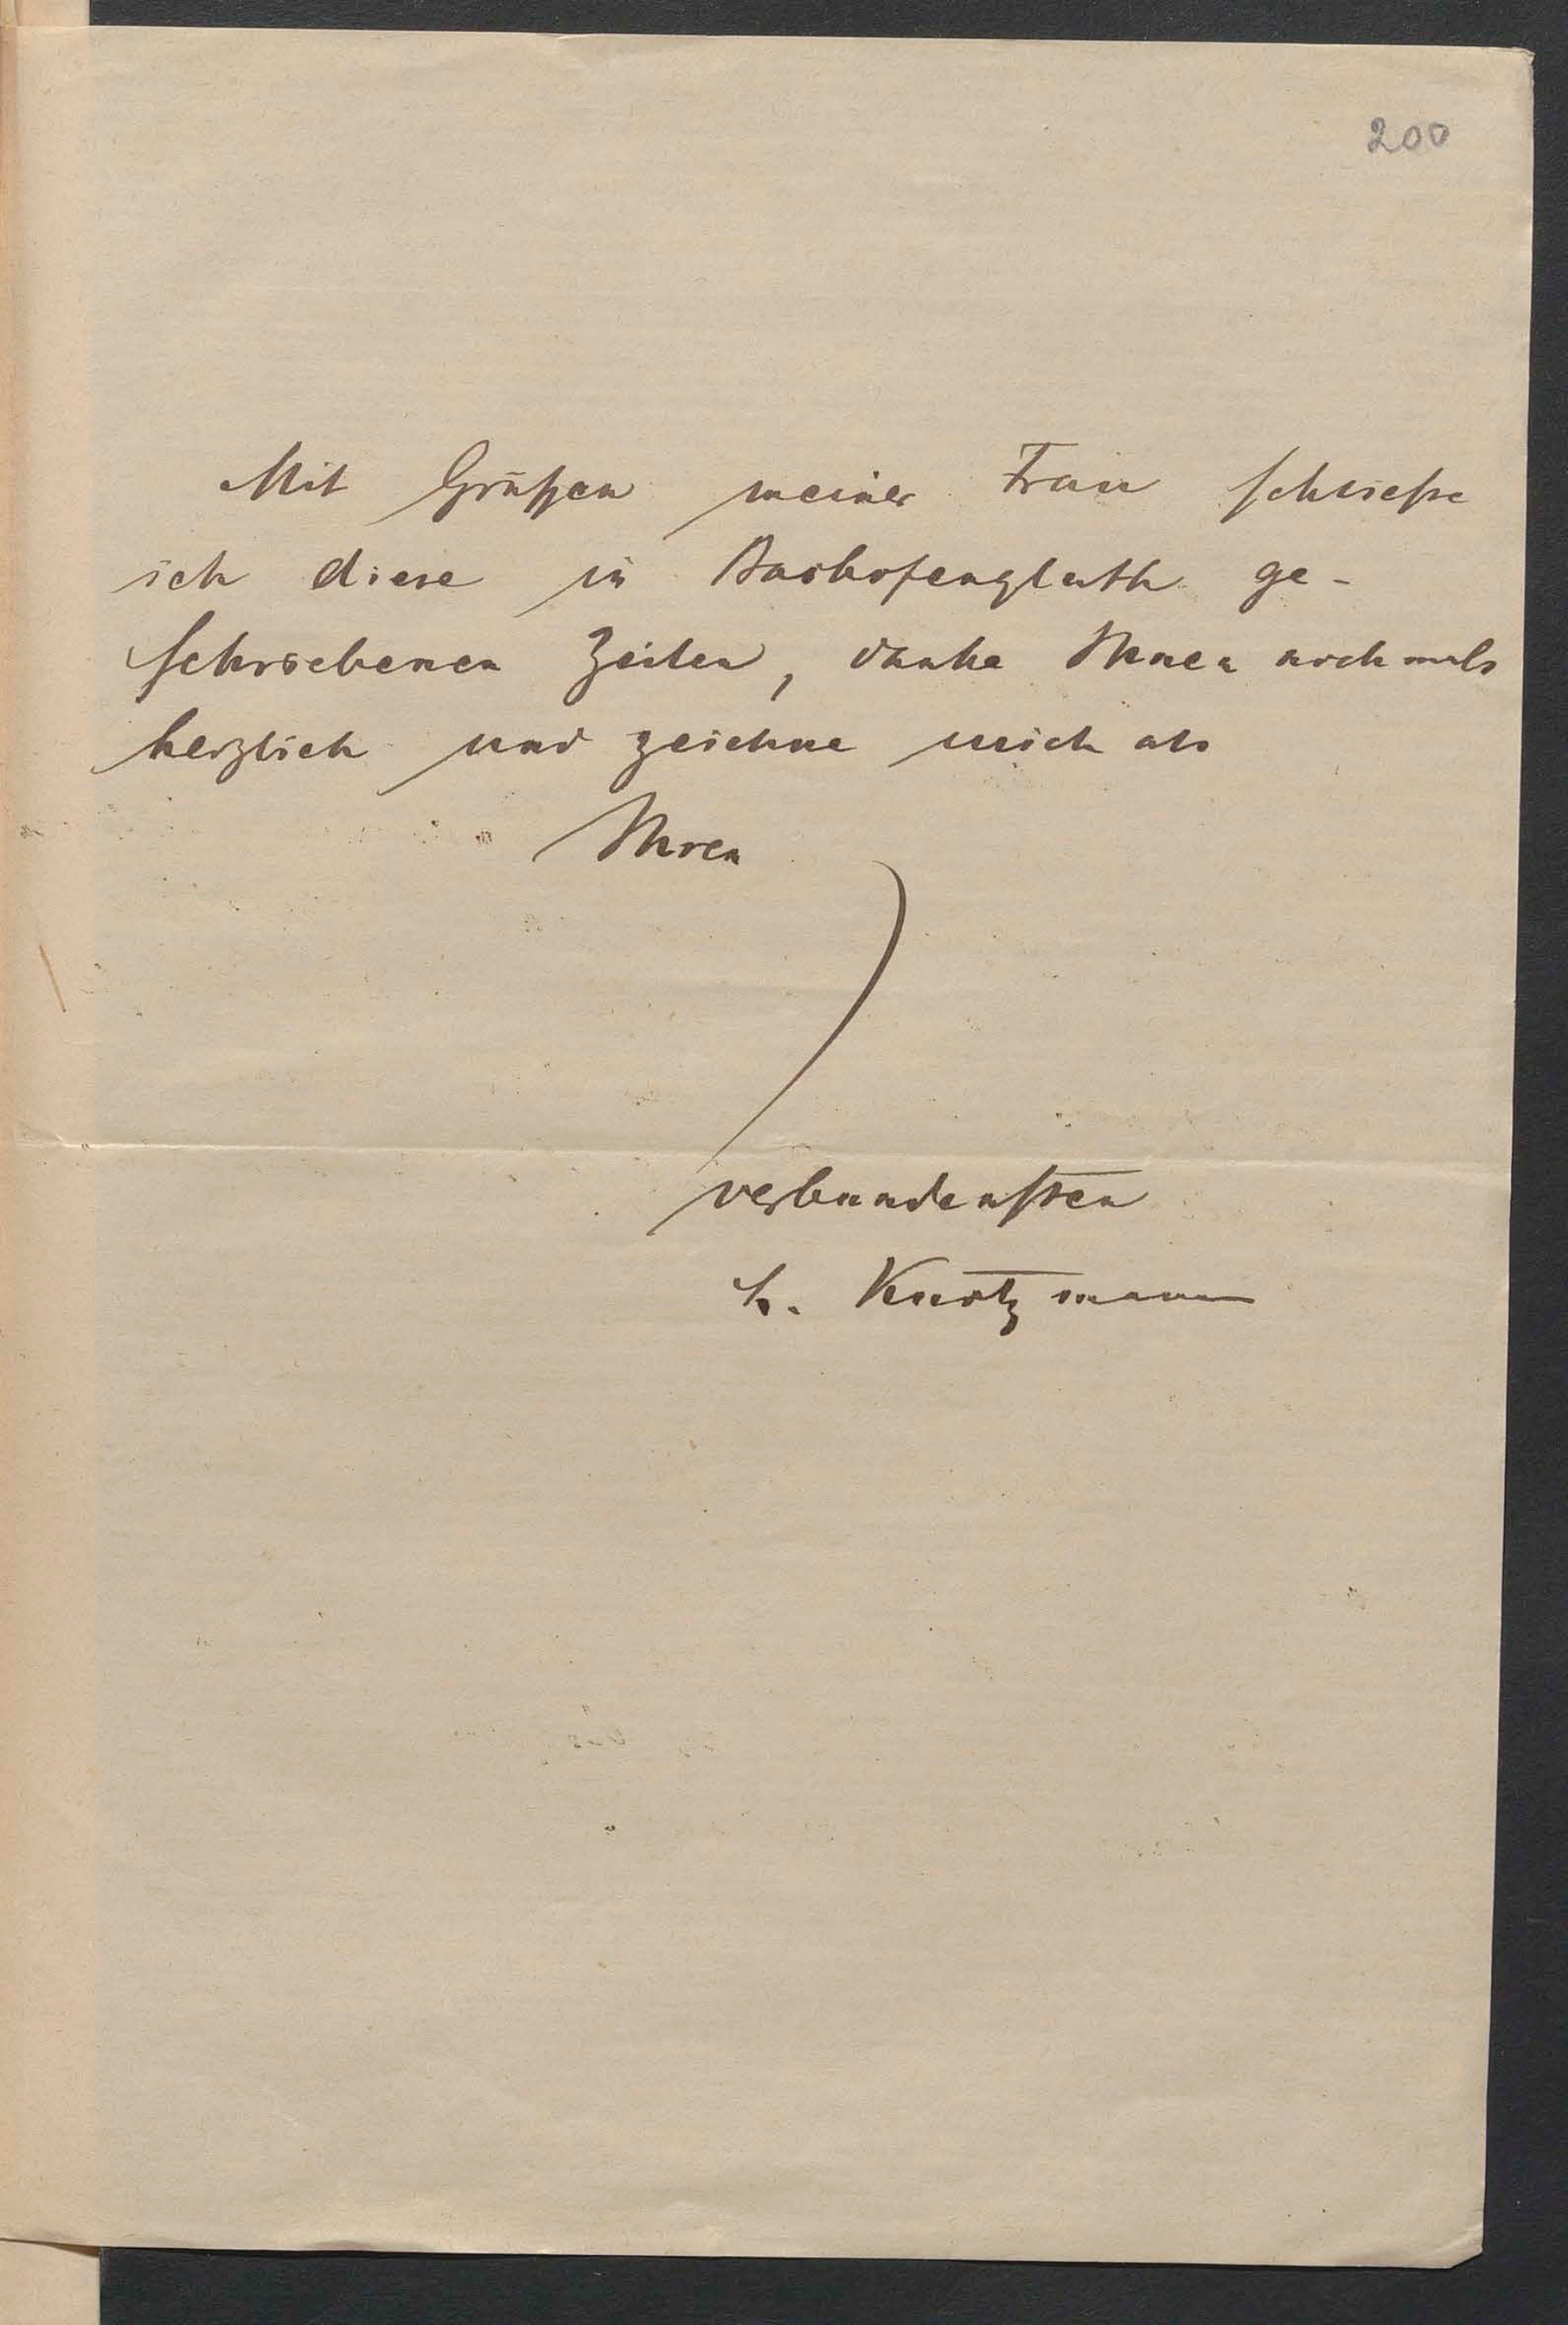 200
Mit Grüßen meiner Frau schließe
ich diese in Backofengluth ge-
schriebenen Zeilen, danke Ihnen nochmals
herzlich und zeichne mich als
Ihren
verbundensten
L. Knotzmann